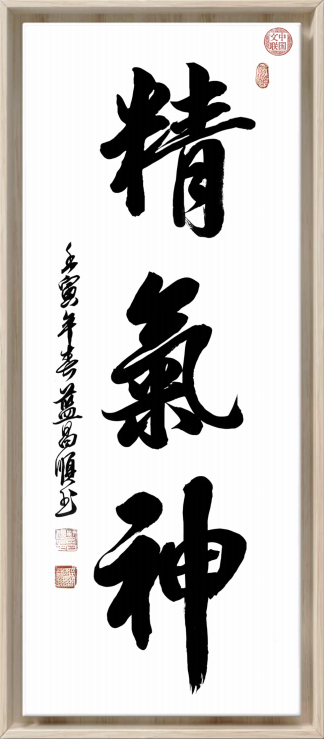 精氣神
壬寅年春藍昌順书
中国文联